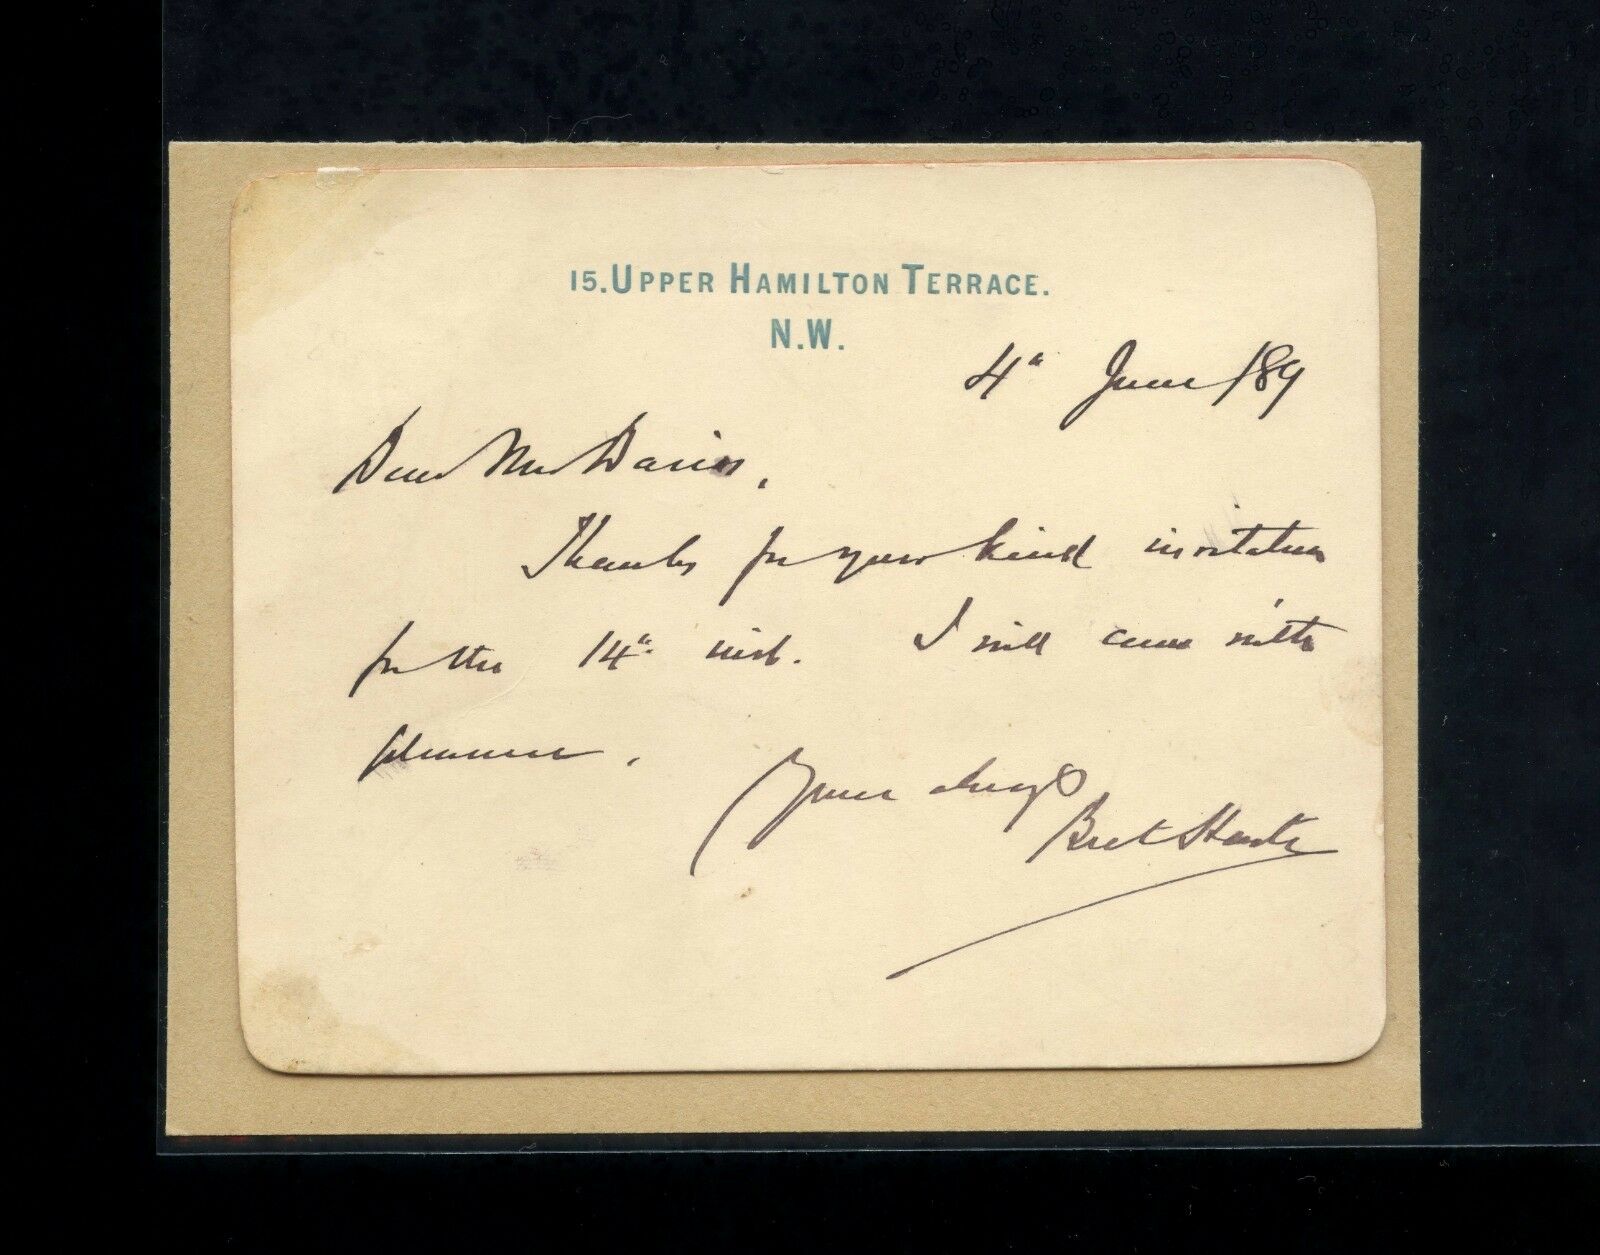 15. UPPER HAMILTON TERRACE.
N.W.
4th June /89
Dear Mr Davies,
Thanks for your kind invitation
for the 14th inst. I will come with
pleasure.
Yours always
Bret Harte